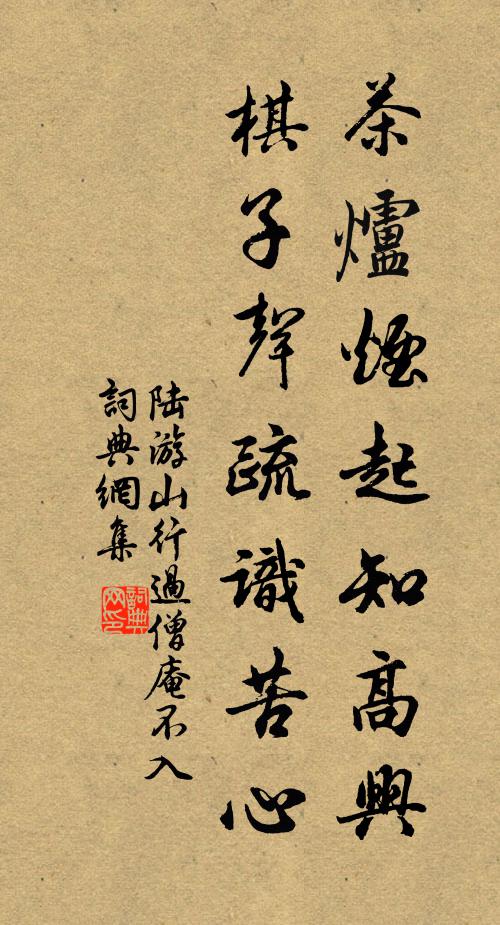 茶爐煙起知高興
棋子聲疏識苦心
陸游山行過僧庵不入
詞典網集
詞典网印